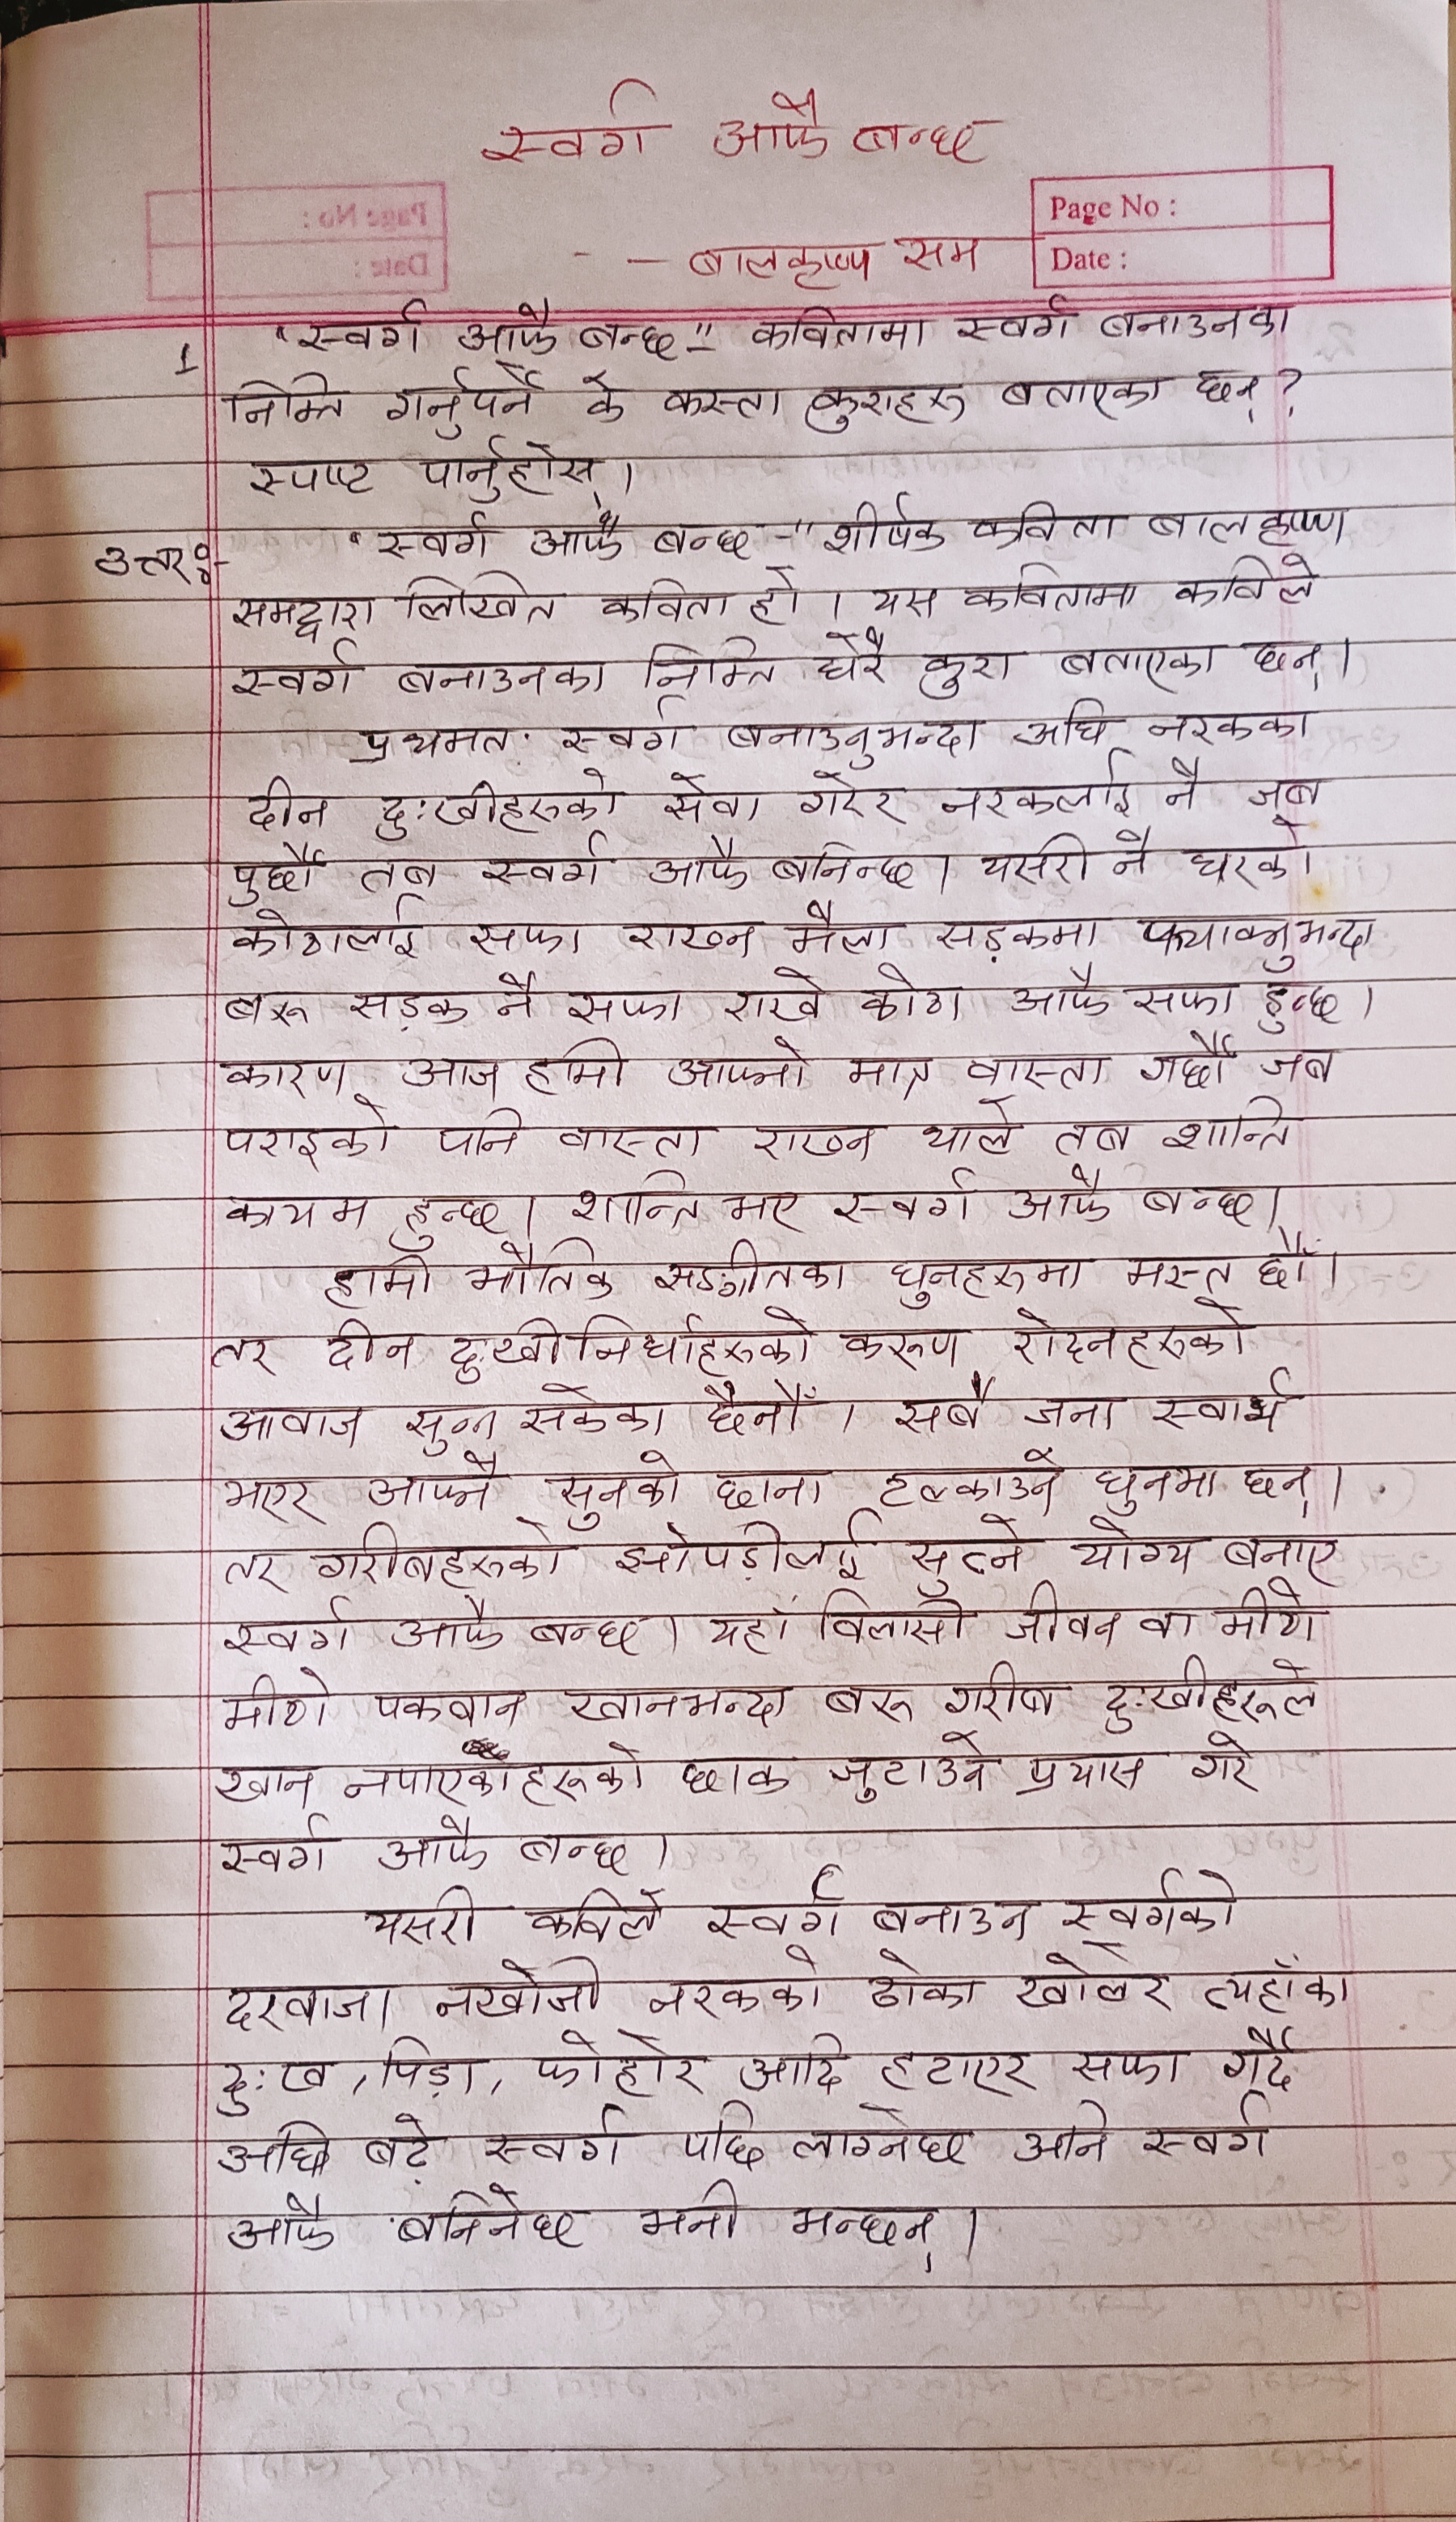 स्वर्ग आफै बन्छ
Page No :
- — बालकृष्ण सम
Date :
1 "स्वर्ग आफै बन्छ" कवितामा स्वर्ग बनाउनका
निम्ति गर्नुपर्ने के कस्ता कुराहरू बताएका छन्?
स्पष्ट पार्नुहोस्।
उत्तरः- "स्वर्ग आफै बन्छ -" शीर्षक कविता बालकृष्ण
समद्वारा लिखित कविता हो । यस कवितामा कविले
स्वर्ग बनाउनका निम्ति धेरै कुरा बताएका छन्।
प्रथमत: स्वर्ग बनाउनुभन्दा अघि नरकका
दीन दुःखीहरूको सेवा गरेर नरकलाई नै जब
पुछौं तब स्वर्ग आफै बनिन्छ। यसरी नै घरको
कोठालाई सफा राख्न मैला सड़कमा फ्याक्नुभन्दा
बरू सड़क नै सफा राखे कोठा आफै सफा हुन्छ।
कारण, आज हामी आफ्नो मात्र वास्ता गर्छौं जब
पराइको पनि वास्ता राख्न थाले तब शान्ति
कायम हुन्छ। शान्ति भए स्वर्ग आफै बन्छ।
हामी भौतिक सङ्गीतका धुनहरूमा मस्त छौं।
तर दीन दुःखी निर्धाहरूको करूण रोदनहरूको
आवाज सुन्न सकेका छैनौँ । सबै जना स्वार्थ
भएर आफ्नै सुनको छाना टल्काउने धुनमा छन्।
तर गरीबहरूको झोपड़ीलाई सुत्ने योग्य बनाए
स्वर्ग आफै बन्छ। यहाँ विलासी जीवन वा मीठो
मीठो पकवान खानभन्दा बरू गरीब दुःखीहरूले
खान नपाएकोहरूको छाक जुटाउने प्रयास गरे
स्वर्ग आफै बन्छ।
यसरी कविले स्वर्ग बनाउन स्वर्गको
दरबाजा नखोजी नरकको ढोका खोलेर त्यहाँका
दुःख, पिड़ा, फोहोर आदि हटाएर सफा गर्दै
अघि बढ़े स्वर्ग पछि लाग्नेछ अनि स्वर्ग
आफै बनिनेछ भनी भन्छन्।